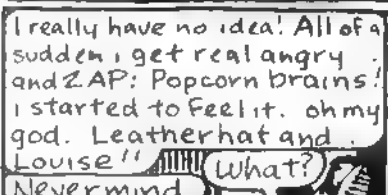 I really have no idea! All of a
sudden i get real angry
and ZAP: Popcorn brains!
i started to Feel it. oh my
god. Leatherhat and
Louise!!
What?
Nevermind